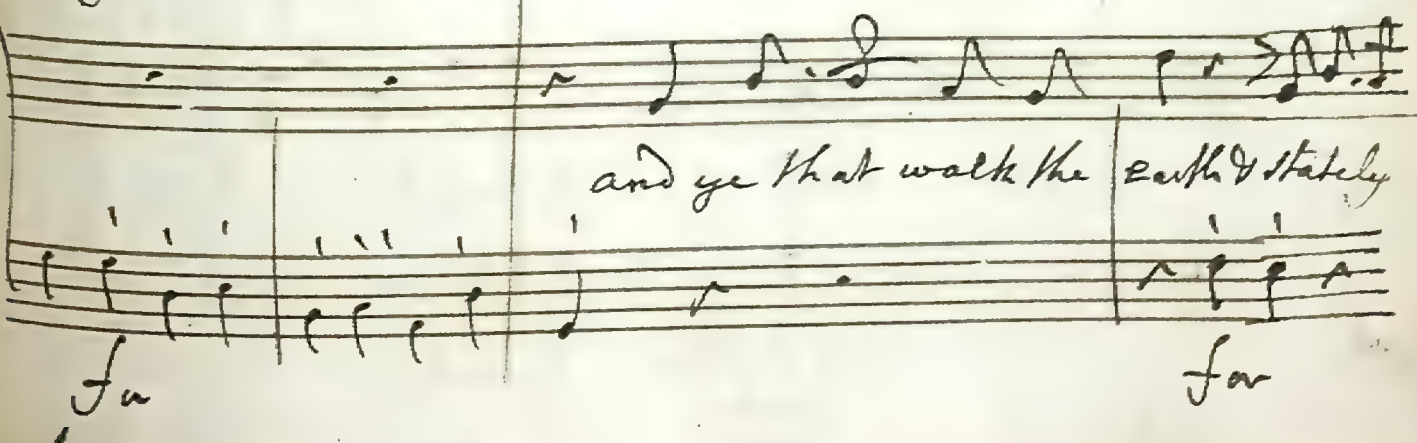 and ye that walk the earth & stately
for